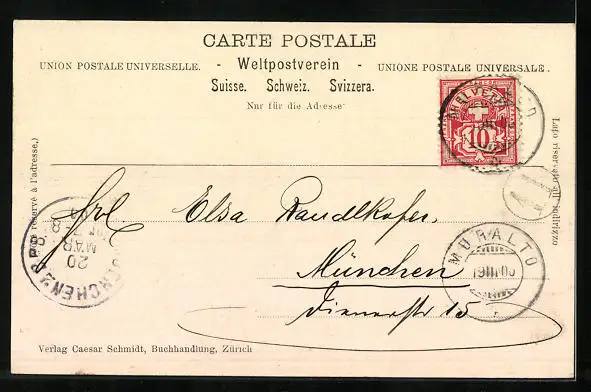 CARTE POSTALE
UNION POSTALE UNIVERSELLE. - Weltpostverein - UNIONE POSTALE UNIVERSALE.
Suisse. Schweiz. Svizzera.
Nur für die Adresse
HELVETIA
10
Côté réservé à l'adresse.)
Lato riservato all' indirizzo
Frl. Elsa Randlkofer.
München
Dienerstr 15
MURALTO
19 III 00
MUENCHEN
20
MAR
Verlag Caesar Schmidt, Buchhandlung, Zürich